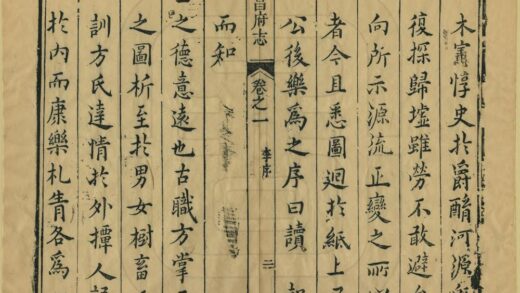 木惇史於爵酳河源
復探歸墟雖勞不敢避
向所示源流正變之所
者今且悉圖迴於紙上
公後樂爲之序曰讀
而知
昌府志
卷之一
李序
二
之德意遠也古職方掌
之圖析至於男女樹畜
訓方氏達情於外撢人
於內而康樂札眚各爲